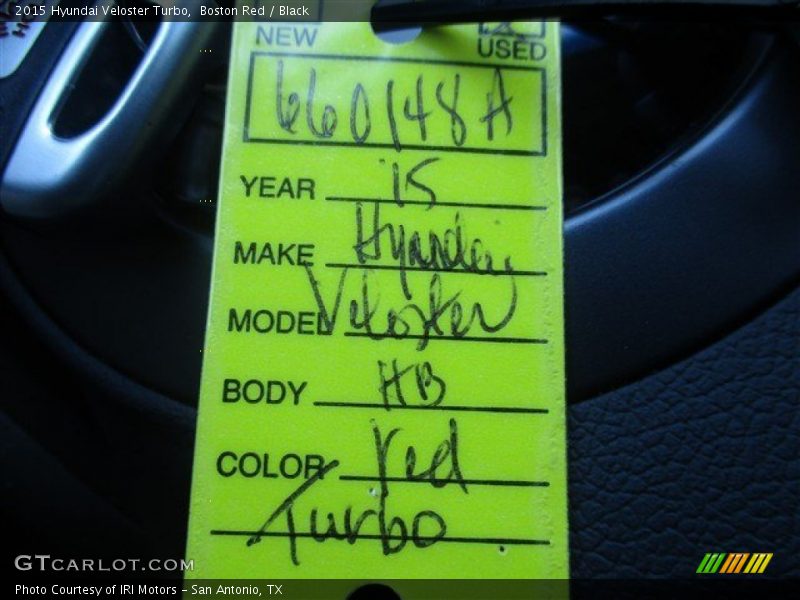 2015 Hyundai Veloster Turbo, Boston Red / Black
NEW USED
660148A
YEAR 15
MAKE Hyundai
MODEL Veloster
BODY HB
COLOR red
Turbo
GTCARLOT.COM
Photo Courtesy of IRI Motors – San Antonio, TX